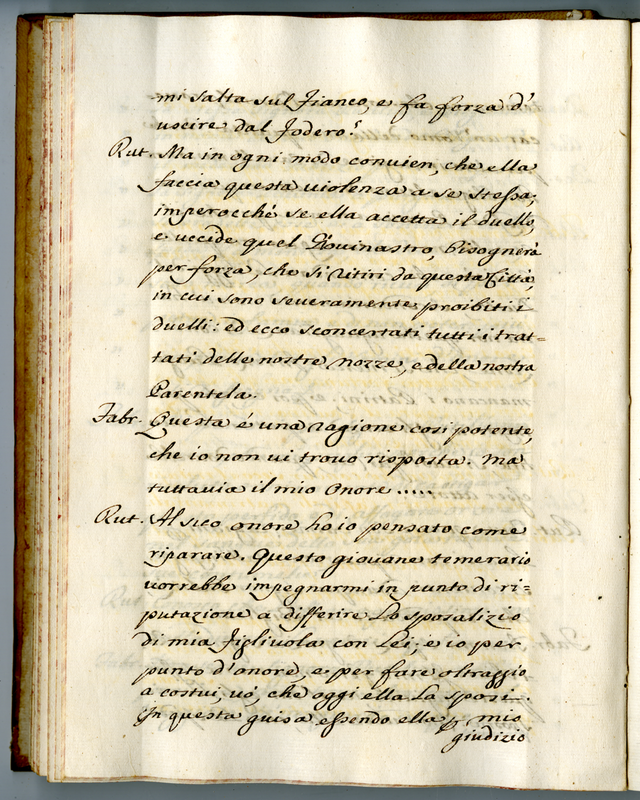 mi salta sul Fianco, e fa forza d'
uscire dal Fodero.
Rut. Ma in ogni modo convien, che ella
faccia questa violenza a se stessa;
imperocché se ella accetta il duello,
e uccide quel Giovinastro, bisognerà
per forza, che si ritiri da questa Città,
in cui sono severamente proibiti i
duelli: ed ecco sconcertati tutti i trat=
tati delle nostre nozze, e della nostra
Parentela.
Fabr. Questa é una ragione cosi potente,
che io non vi trovo risposta. Ma
tuttavia il mio Onore .....
Rut. Al suo onore ho io pensato come
riparare. Questo giovane temerario
vorrebbe impegnarmi in punto di ri=
putazione a differire Lo sposalizio
di mia figliuola con Lei; e io per
punto d'onore, e per fare oltraggio
a costui, vó, che oggi ella La sposi.
In questa guisa essendo ella p mio
giudizio